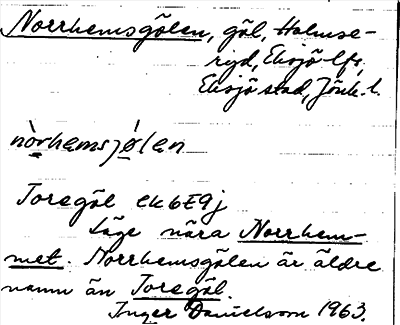 Norrhemsgölen, göl, Holmse-
ryd, Eksjö lfs,
Eksjö stad, Jönk. l.
nòrhemsjólen
Toregöl ek 6E9j
Läge nära Norrhem-
met. Norrhemsgölen är äldre
namn än Toregöl.
Inger Danielson 1963.